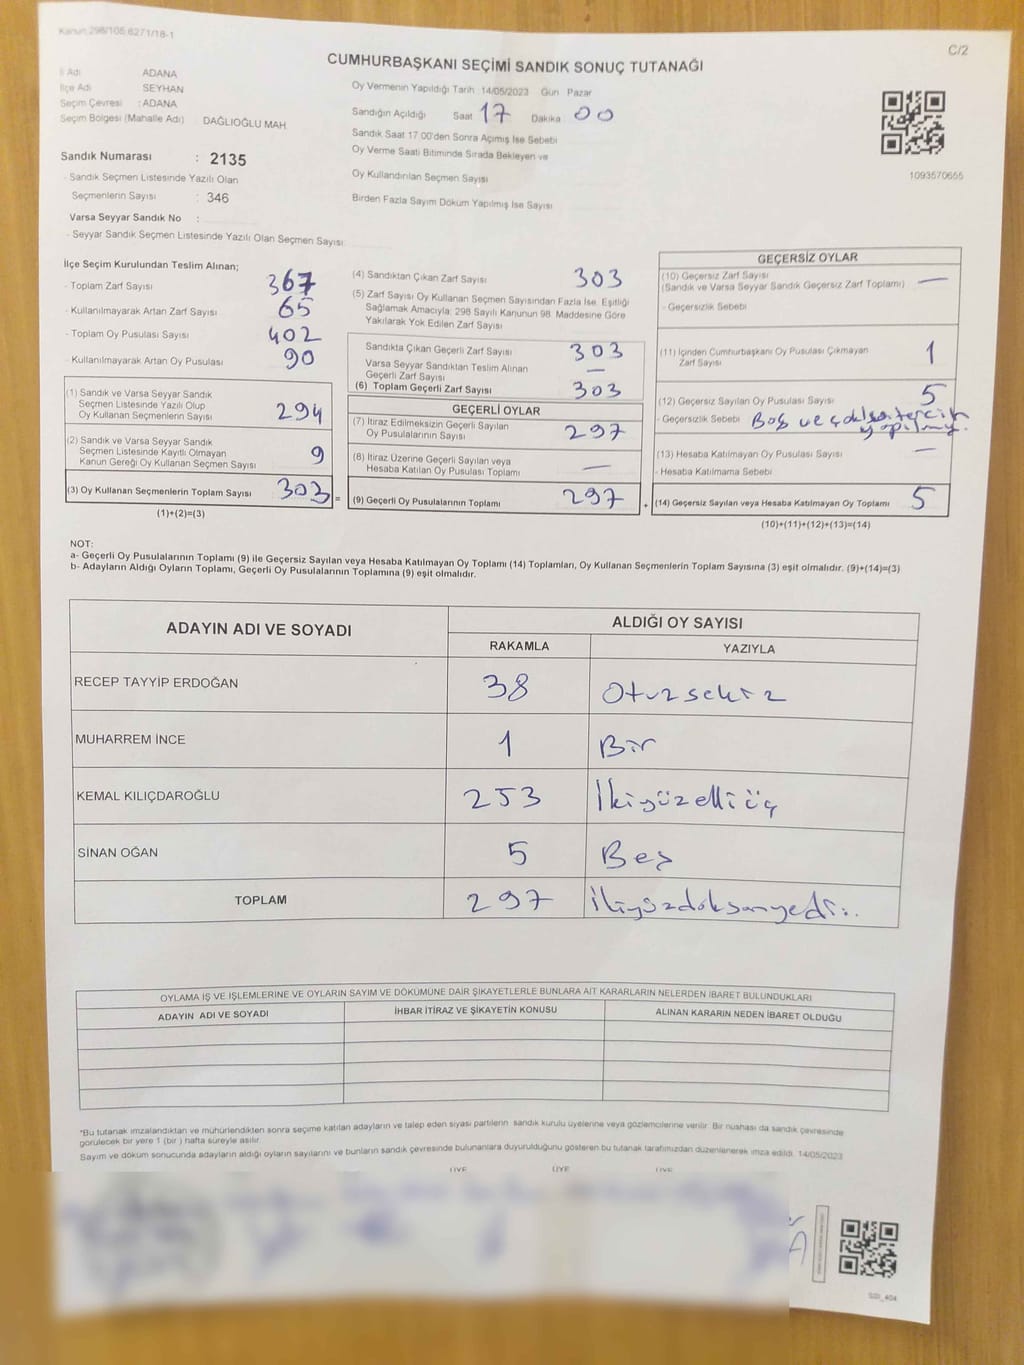 Kanun:298/105.6271/18-1
C/2
CUMHURBAŞKANI SEÇİMİ SANDIK SONUÇ TUTANAĞI
İl Adı ADANA
İlçe Adı SEYHAN
Seçim Çevresi : ADANA
Seçim Bölgesi (Mahalle Adı) DAĞLIOĞLU MAH
Sandık Numarası : 2135
- Sandık Seçmen Listesinde Yazılı Olan
Seçmenlerin Sayısı : 346
Varsa Seyyar Sandık No :
- Seyyar Sandık Seçmen Listesinde Yazılı Olan Seçmen Sayısı:
Oy Vermenin Yapıldığı Tarih 14/05/2023 Gün Pazar
Sandığın Açıldığı Saat 17 Dakika 00
Sandık Saat 17:00'den Sonra Açımış İse Sebebi
Oy Verme Saati Bitiminde Sırada Bekleyen ve
Oy Kullandırılan Seçmen Sayısı
Birden Fazla Sayım Döküm Yapılmış İse Sayısı
1093570655
İlçe Seçim Kurulundan Teslim Alınan;
- Toplam Zarf Sayısı 367
- Kullanılmayarak Artan Zarf Sayısı 65
- Toplam Oy Pusulası Sayısı 402
- Kullanılmayarak Artan Oy Pusulası 90
(1) Sandık ve Varsa Seyyar Sandık
Seçmen Listesinde Yazılı Olup
Oy Kullanan Seçmenlerin Sayısı 294
(2) Sandık ve Varsa Seyyar Sandık
Seçmen Listesinde Kayıtlı Olmayan
Kanun Gereği Oy Kullanan Seçmen Sayısı 9
(3) Oy Kullanan Seçmenlerin Toplam Sayısı 303 =
(1)+(2)=(3)
(4) Sandıktan Çıkan Zarf Sayısı 303
(5) Zarf Sayısı Oy Kullanan Seçmen Sayısından Fazla İse, Eşitliği
Sağlamak Amacıyla; 298 Sayılı Kanunun 98. Maddesine Göre
Yakılarak Yok Edilen Zarf Sayısı
Sandıkta Çıkan Geçerli Zarf Sayısı 303
Varsa Seyyar Sandıktan Teslim Alınan
Geçerli Zarf Sayısı —
(6) Toplam Geçerli Zarf Sayısı 303
GEÇERLİ OYLAR
(7) İtiraz Edilmeksizin Geçerli Sayılan
Oy Pusulalarının Sayısı 297
(8) İtiraz Üzerine Geçerli Sayılan veya
Hesaba Katılan Oy Pusulası Toplamı —
(9) Geçerli Oy Pusulalarının Toplamı 297 +
GEÇERSİZ OYLAR
(10) Geçersiz Zarf Sayısı
(Sandık ve Varsa Seyyar Sandık Geçersiz Zarf Toplamı) —
- Geçersizlik Sebebi
(11) İçinden Cumhurbaşkanı Oy Pusulası Çıkmayan
Zarf Sayısı 1
(12) Geçersiz Sayılan Oy Pusulası Sayısı 5
- Geçersizlik Sebebi Boş ve çoklu tercih
yapılmış.
(13) Hesaba Katılmayan Oy Pusulası Sayısı —
- Hesaba Katılmama Sebebi
(14) Geçersiz Sayılan veya Hesaba Katılmayan Oy Toplamı 5
(10)+(11)+(12)+(13)=(14)
NOT:
a- Geçerli Oy Pusulalarının Toplamı (9) ile Geçersiz Sayılan veya Hesaba Katılmayan Oy Toplamı (14) Toplamları, Oy Kullanan Seçmenlerin Toplam Sayısına (3) eşit olmalıdır. (9)+(14)=(3)
b- Adayların Aldığı Oyların Toplamı, Geçerli Oy Pusulalarının Toplamına (9) eşit olmalıdır.
ADAYIN ADI VE SOYADI
ALDIĞI OY SAYISI
RAKAMLA YAZIYLA
RECEP TAYYİP ERDOĞAN 38 Otuzsekiz
MUHARREM İNCE 1 Bir
KEMAL KILIÇDAROĞLU 253 İkiyüzelliüç
SİNAN OĞAN 5 Beş
TOPLAM 297 İkiyüzdoksanyedi..
OYLAMA İŞ VE İŞLEMLERİNE VE OYLARIN SAYIM VE DÖKÜMÜNE DAİR ŞİKAYETLERLE BUNLARA AİT KARARLARIN NELERDEN İBARET BULUNDUKLARI
ADAYIN ADI VE SOYADI İHBAR İTİRAZ VE ŞİKAYETİN KONUSU ALINAN KARARIN NEDEN İBARET OLDUĞU
*Bu tutanak imzalandıktan ve mühürlendikten sonra seçime katılan adayların ve talep eden siyasi partilerin sandık kurulu üyelerine veya gözlemcilerine verilir. Bir nüshası da sandık çevresinde
görülecek bir yere 1 (bir ) hafta süreyle asılır.
Sayım ve döküm sonucunda adayların aldığı oyların sayılarını ve bunların sandık çevresinde bulunanlara duyurulduğunu gösteren bu tutanak tarafımızdan düzenlenerek imza edildi. 14/05/2023
ÜYE ÜYE ÜYE